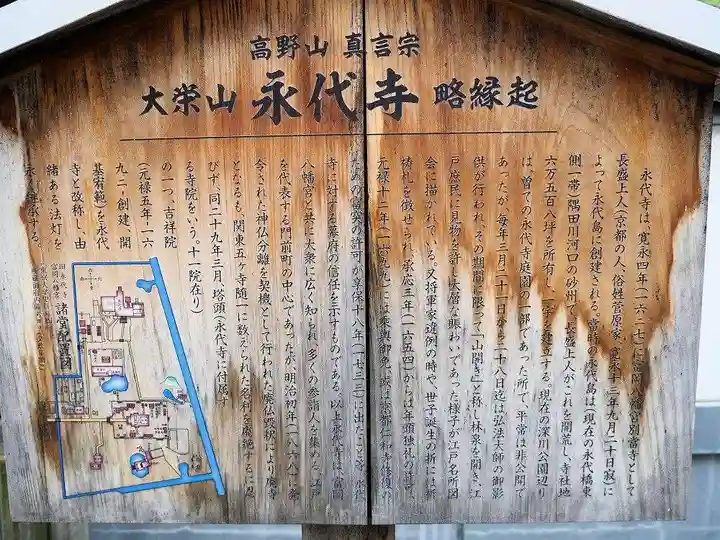 高野山 真言宗
大栄山 永代寺 略縁起
永代寺は、寛永四年(一六二七)に富岡八幡宮別当寺として
長盛上人(京都の人、俗姓菅原家、寛永十三年九月二十日寂)に
よって永代島に創建される。当時の永代島は(現在の永代橋東
側一帯)隅田川河口の砂州で、長盛上人がこれを開荒し、寺社地
六万五百八坪を所有し、一宇を建立する。現在の深川公園辺り
は、曽ての永代寺庭園の一部であった所で、平常は非公開で
あったが、毎年三月二十一日から二十八日迄は弘法大師の御影
供が行われ、その期間に限って「山開き」と称し林泉を開き、江
戸庶民に見物を許し大層な賑わいであった様子が江戸名所図
会に描かれている。又将軍家違例の時や、世子誕生の折には祈
祷札を徴せられ、承応三年(一六五四)からは年頭独礼の
元禄十二年(一六九九)には乗輿御免、或は京都仁和寺修復の
ための勧募の許可が享保十八年(一七三三)に出たこと等、永代
寺に対する幕府の信任を示すものである。以上永代寺は、富岡
八幡宮と共に大衆に広く知られ、多くの参詣人を集める、江戸
を代表する門前町の中心であったが、明治初年(一八六八)に発
令された神仏分離を契機として行われた廃仏毀釈により廃寺
となるも、関東五ヶ寺随一に数えられた名刹を廃絶するに忍
びず、同二十九年三月、塔頭(永代寺に付属す
る寺院をいう。十一院在り)
の一つ、吉祥院
(元禄五年・一六
九二・創建、開
基宥範)を永代
寺と改称し、由
緒ある法灯を
永く継承する。
諸堂配置図